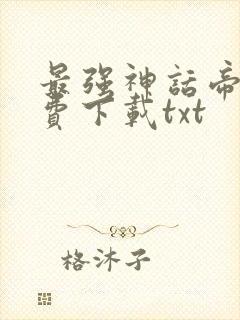 最强神話帝
費下載txt
格沐子